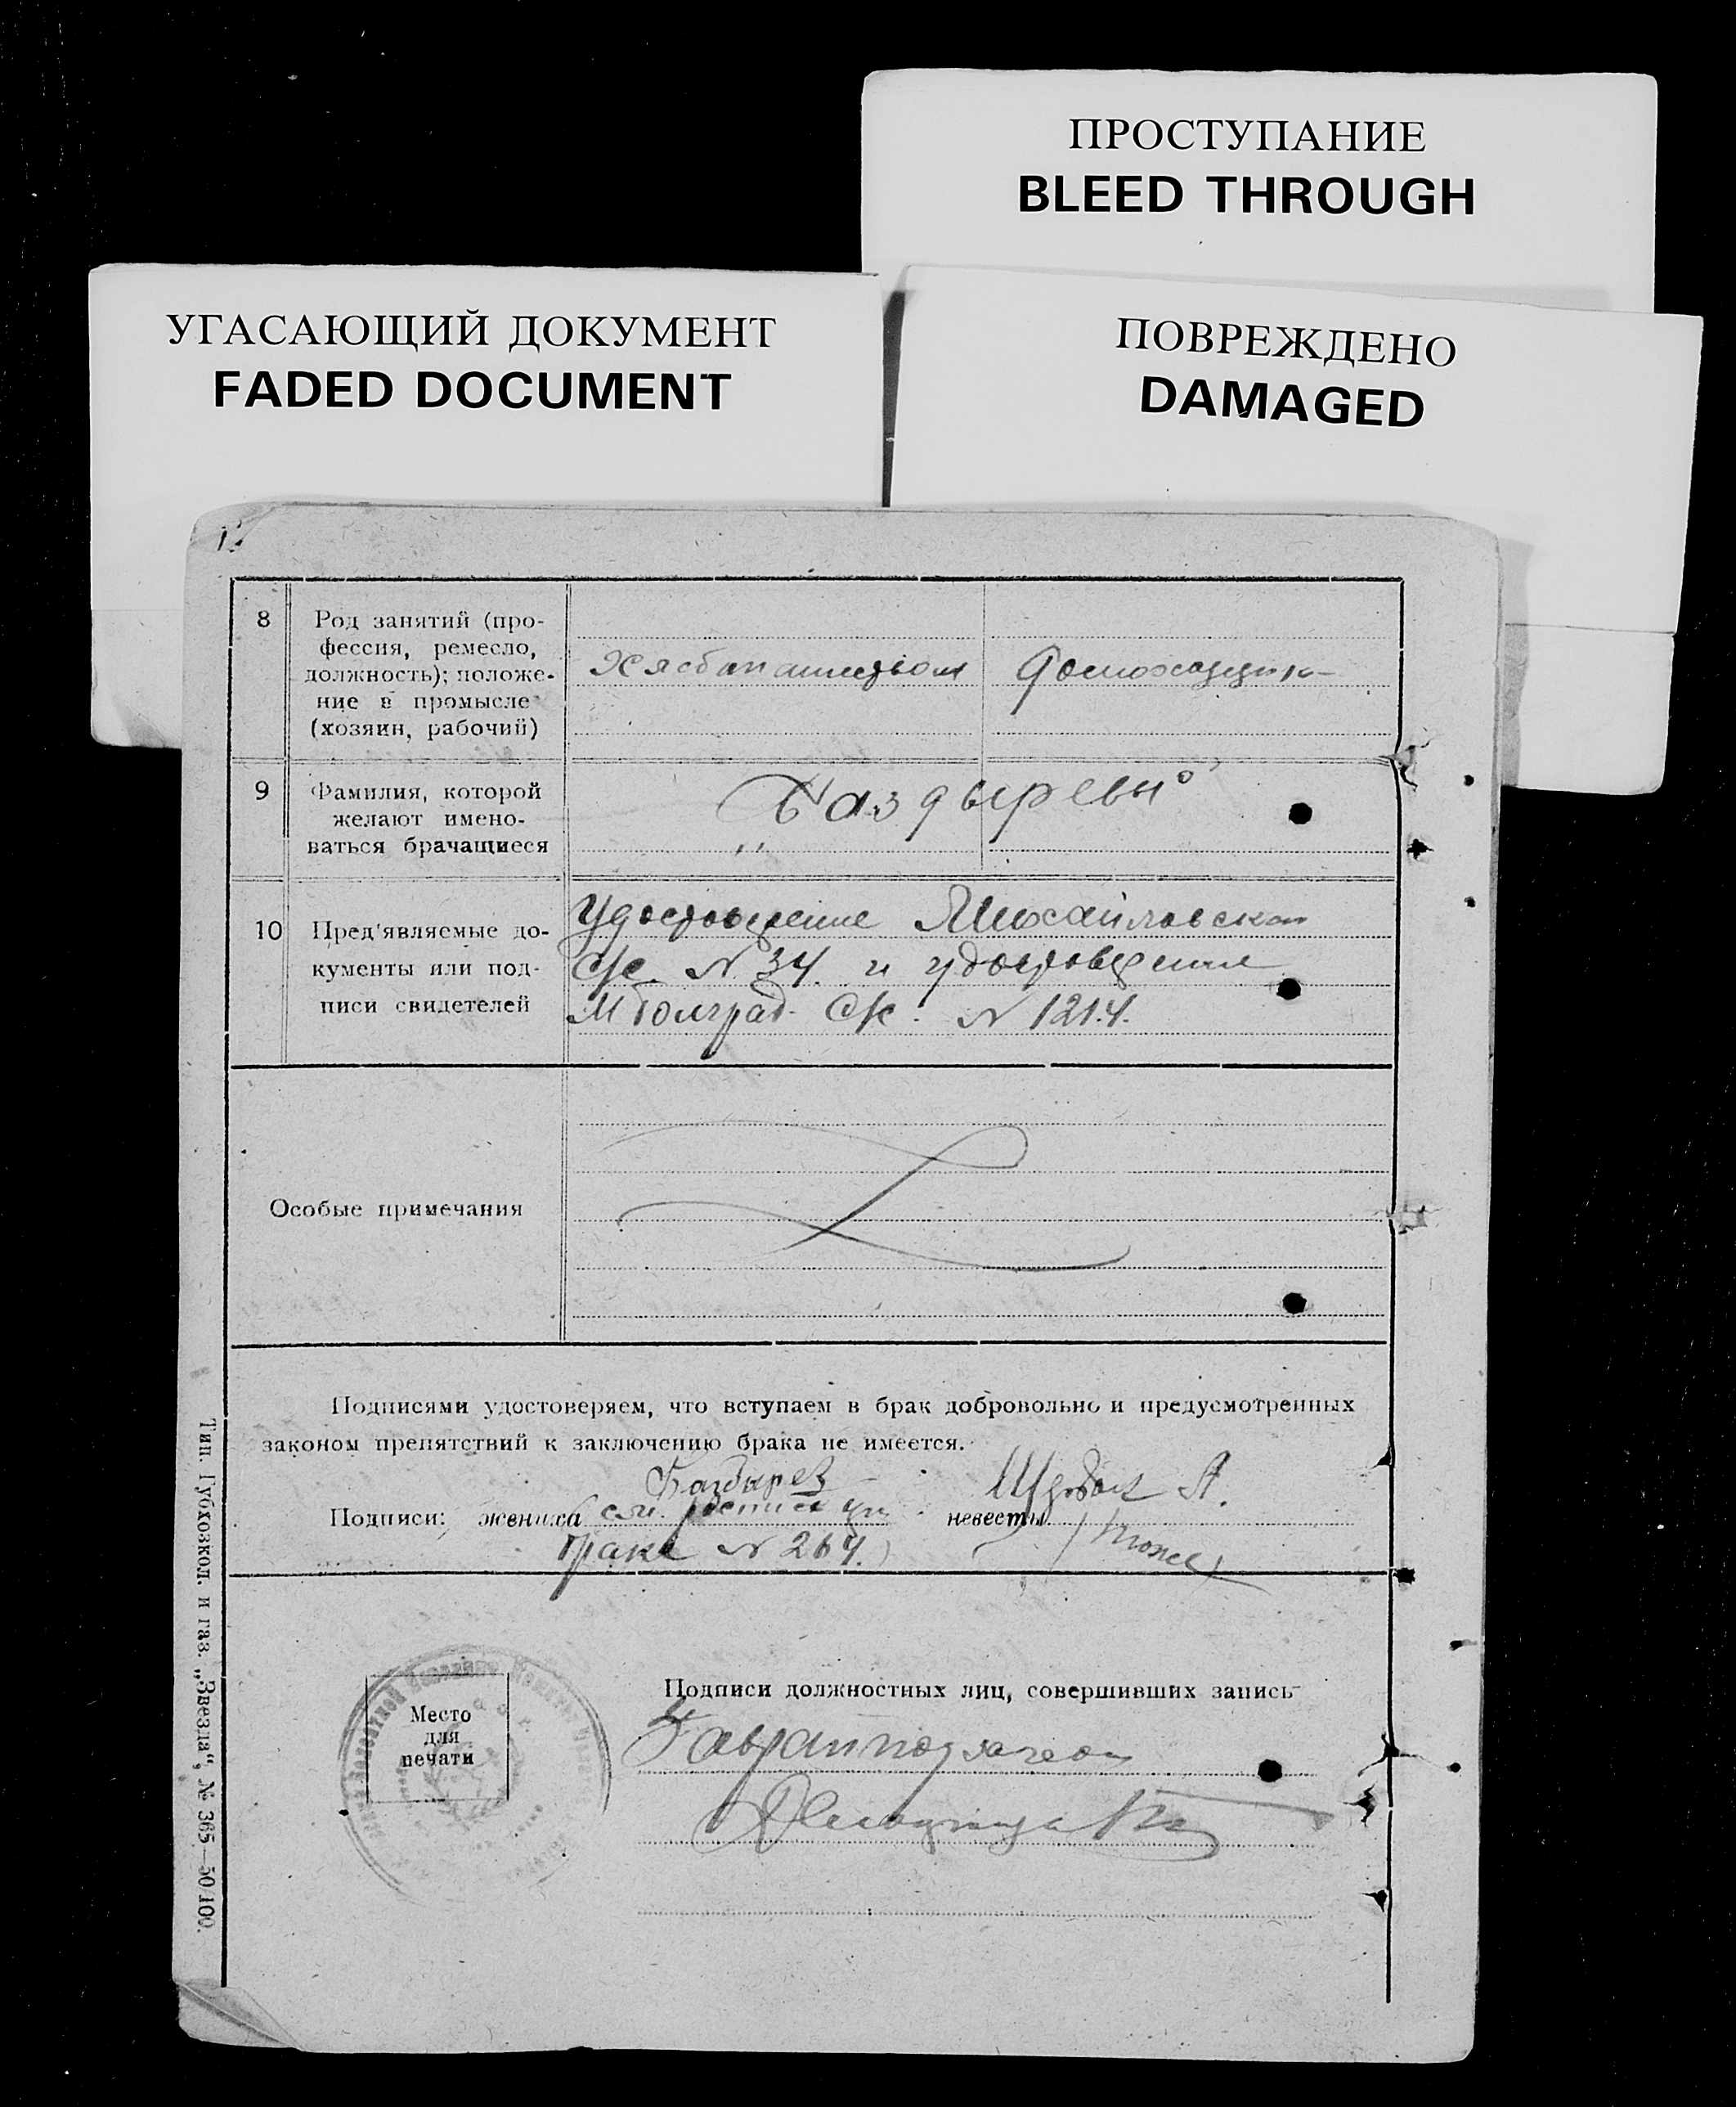 ПРОСТУПАНИЕ
BLEED THROUGH
УГАСАЮЩИЙ ДОКУМЕНТ
FADED DOCUMENT
ПОВРЕЖДЕНО
DAMAGED
8
Род занятий (про-
фессия, ремесло,
должность); положе-
ние в промысле
(хозяин, рабочий)
Хлебопашеством
9
Фамилия, которой
желают имено-
ваться брачащиеся
Баздыревы
10
Пред'являемые до-
кументы или под-
писи свидетелей
Удостоверение Михайловского
с/с. № 34. и удостоверение
с/с. № 1214.
Особые примечания
Подписями удостоверяем, что вступаем в брак добровольно и предусмотренных
законом препятствий к заключению брака не имеется.
Баздырев
Подписи: жениха
невесты
А.
браке № 264.
Место
для
печати
Подписи должностных лиц, совершивших запись
Тип. Губхозкол. и газ. „Звезда“, № 365—50/100.